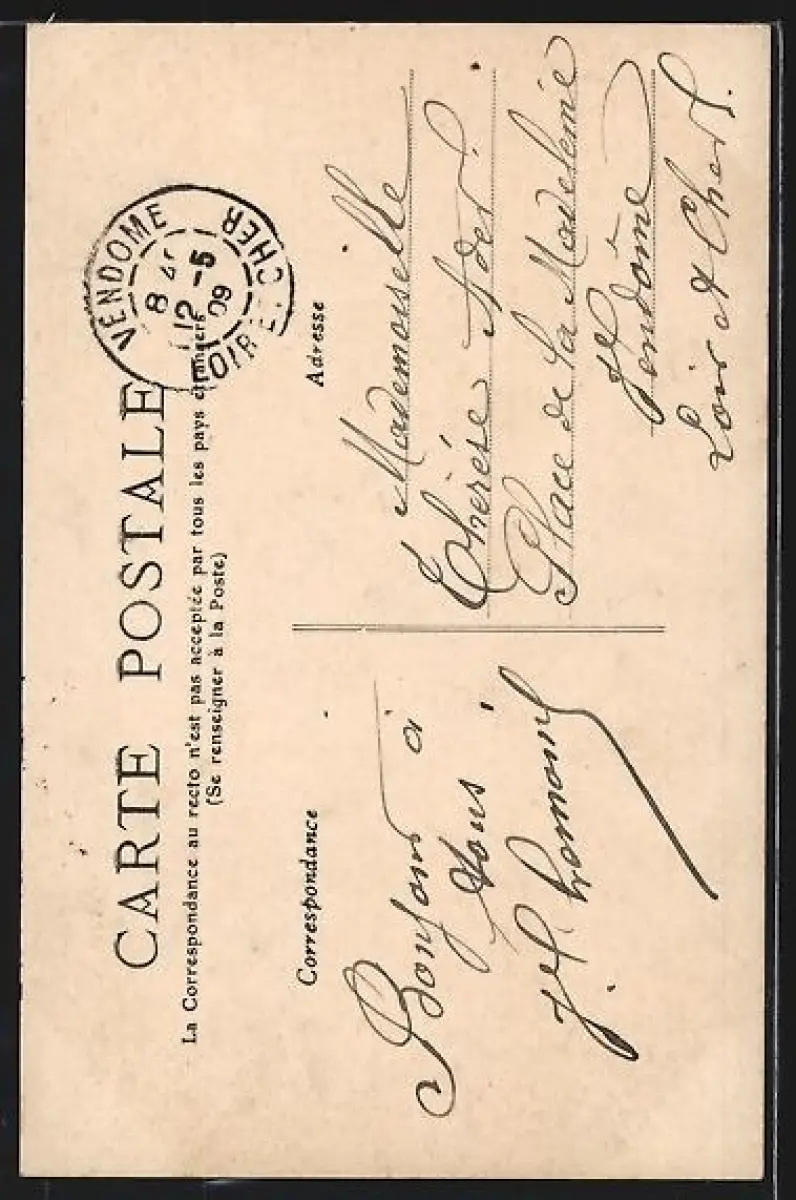 CARTE POSTALE
La Correspondance au recto n'est pas acceptée par tous les pays étrangers
(Se renseigner à la Poste)
VENDOME
8
12 - 5
09
LOIR ET CHER
Correspondance
Bonjour à
tous
Adresse
Mademoiselle
Thérèse
Place de la Madeleine
Vendôme
Loir et Cher.